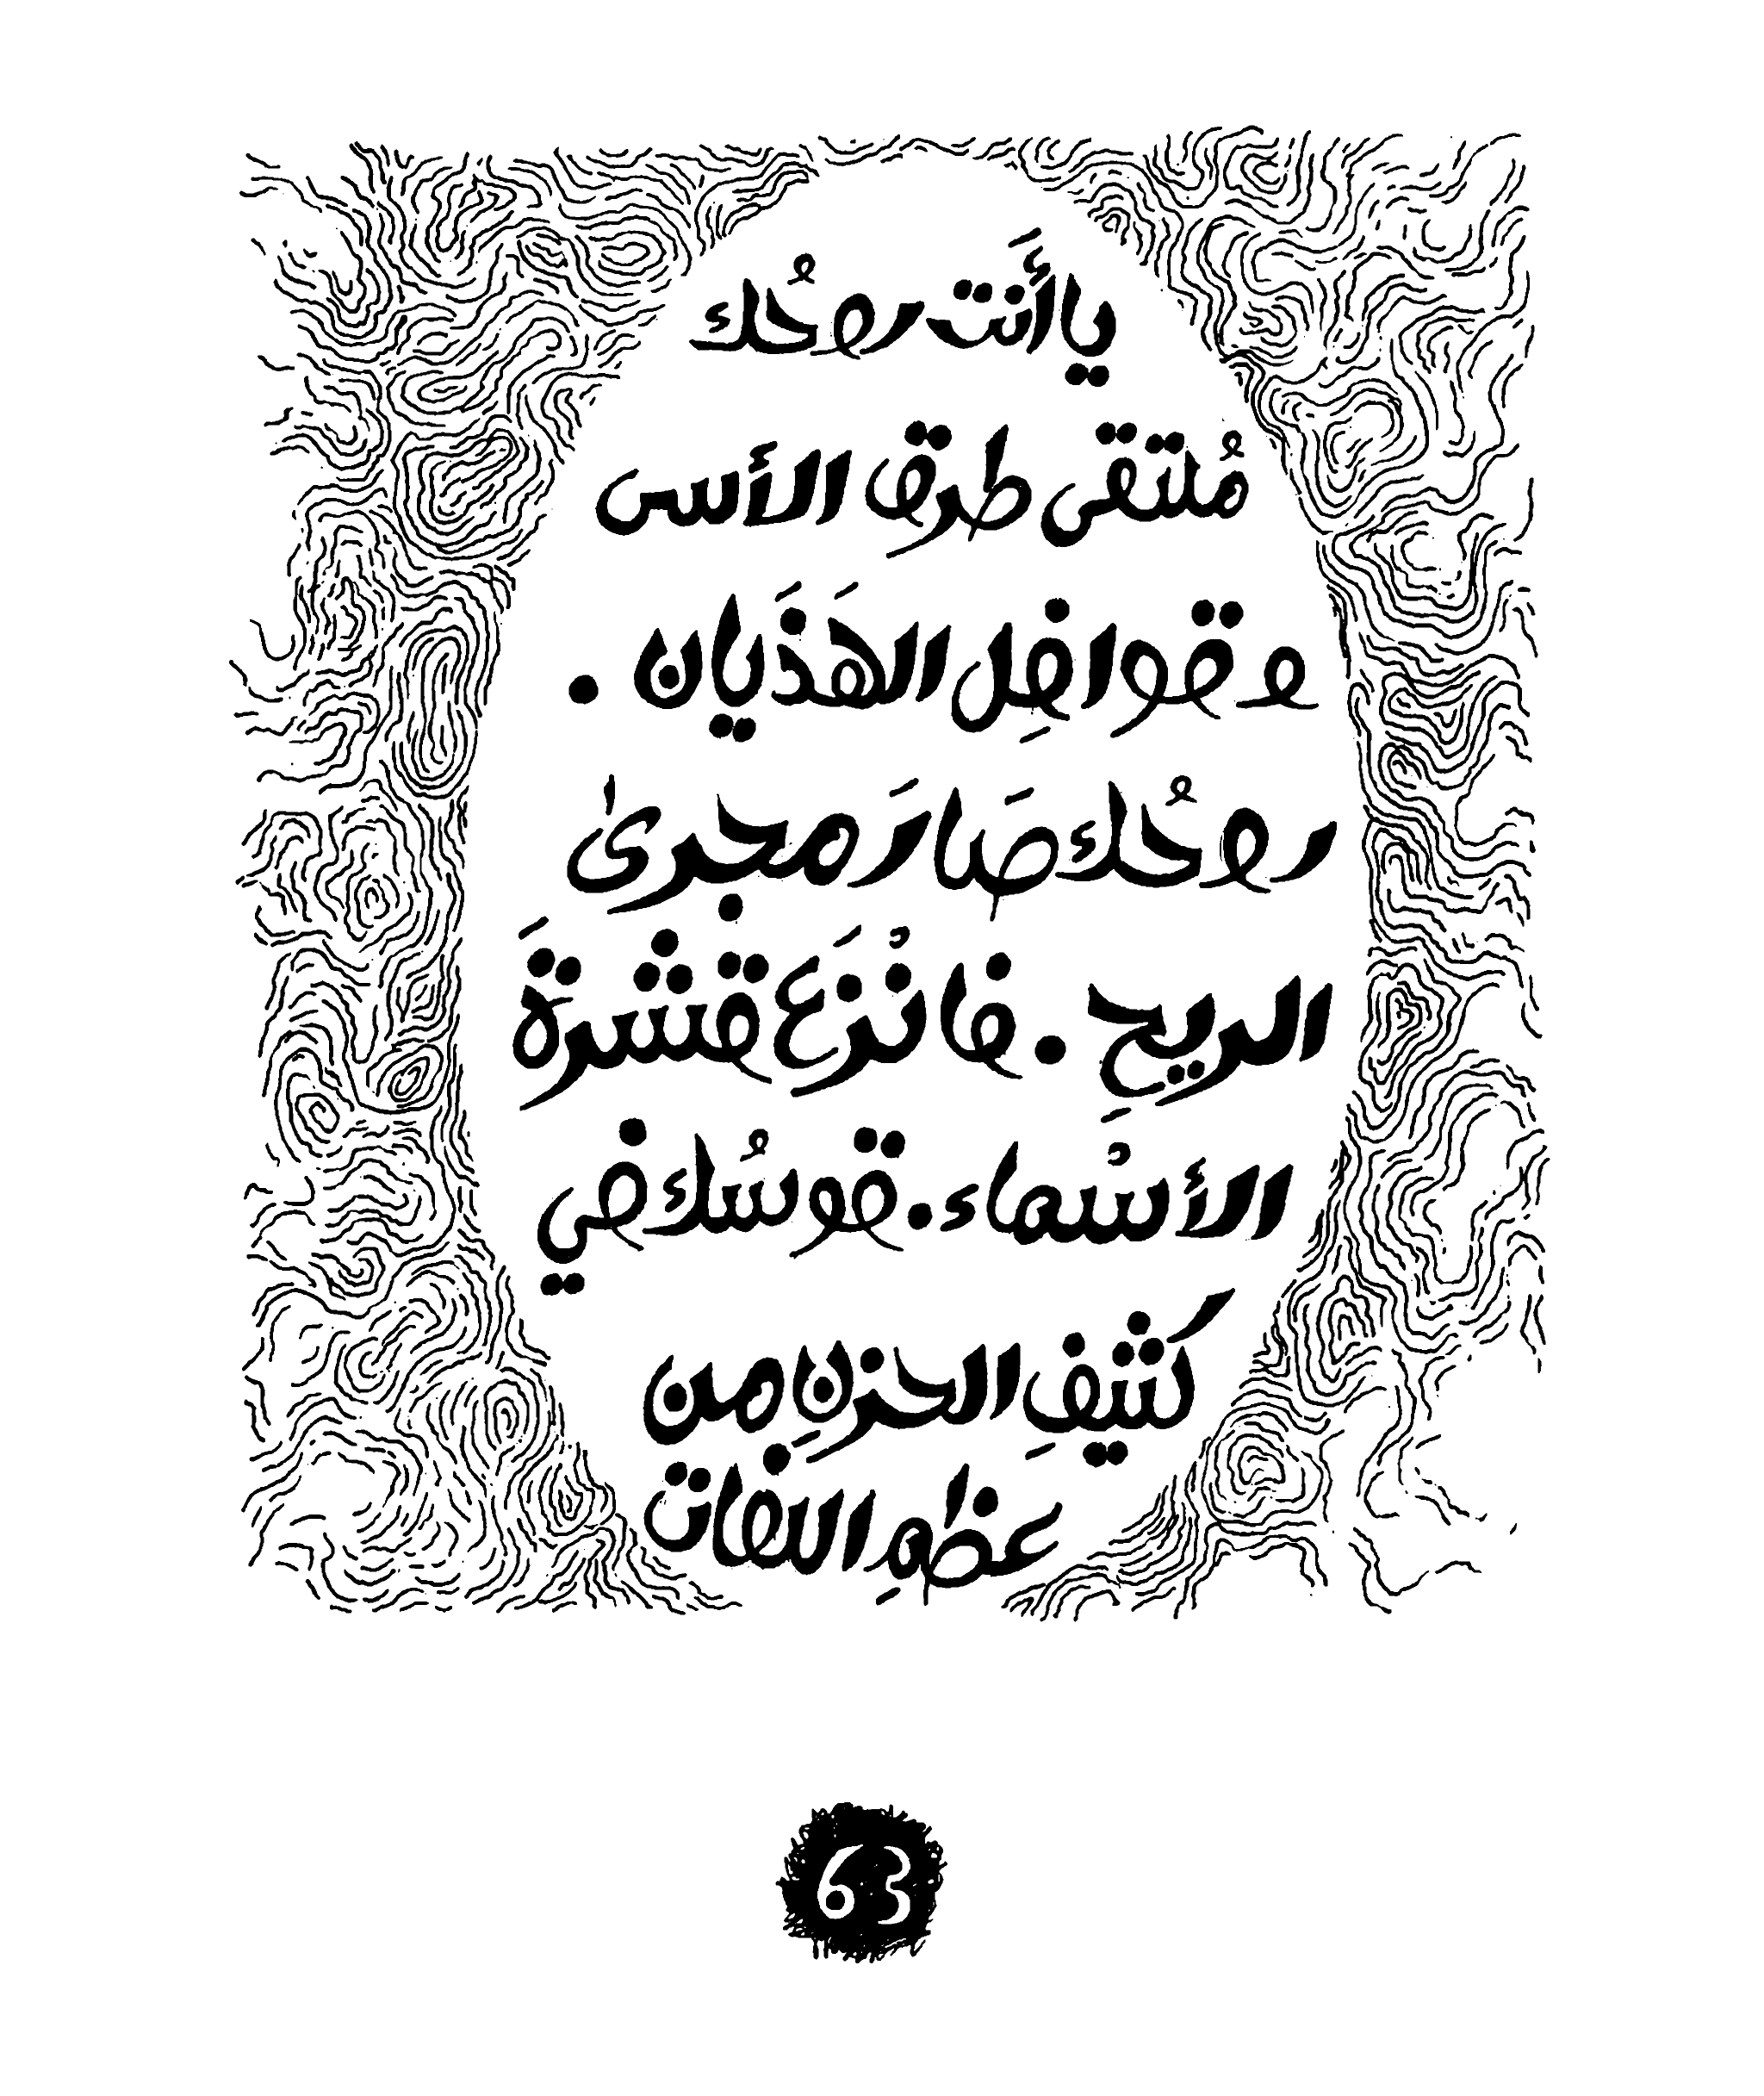 يا أَنت روحُك
مُلتقى طرق الأسى
و قوافِل الهَذَيان .
روحُك صَارَ مجرىٰ
الريحِ . فانْزَع قشرةَ
الأسْماء . قوسُك في
كثيفِ الحزنِ من
عظمِ اللغات
63